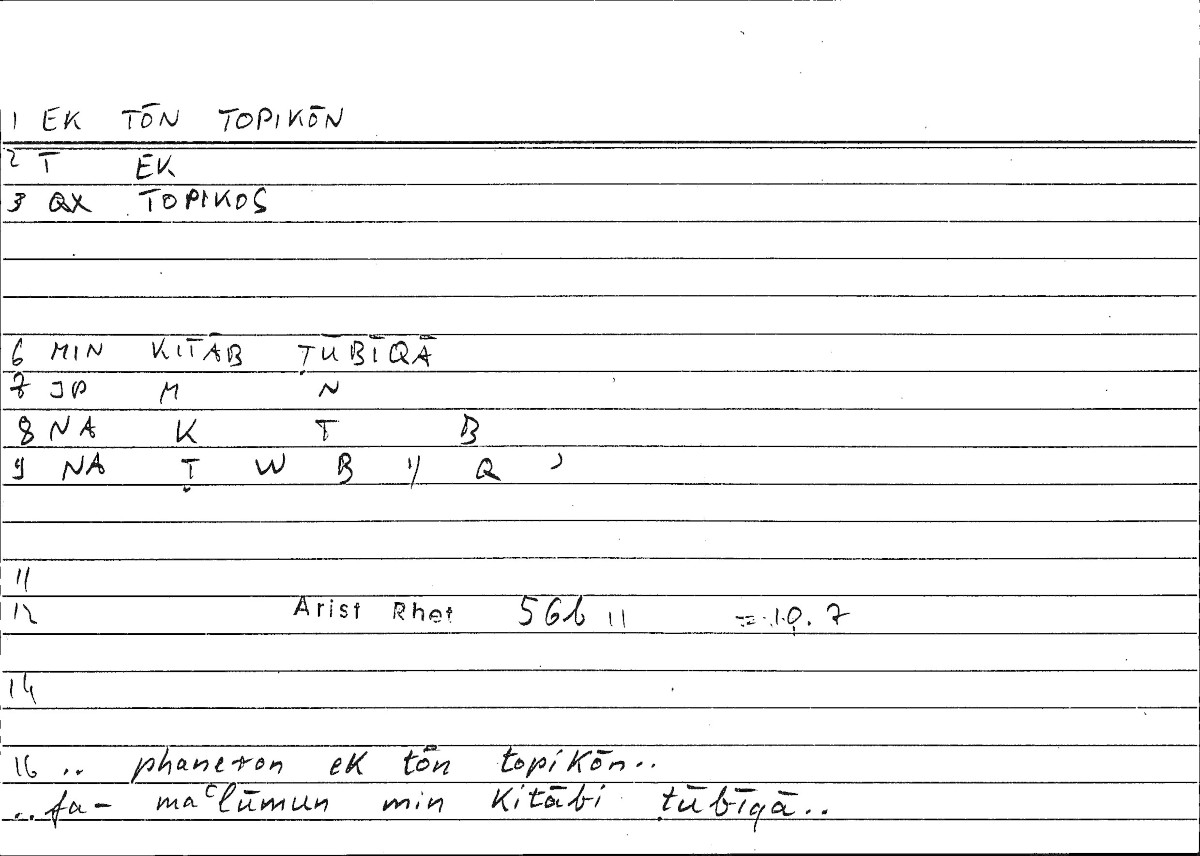 1 EK TŌN TOPIKŌN
2 T EK
3 QX TOPIKOS
6 MIN KITĀB ṬŪBĪQĀ
7 JP M N
8 NA K T B
9 NA Ṭ W B Y Q ʾ
11
12 Arist Rhet 56b 11 = 10. 7
14
16 .. phaneron ek tōn topikōn..
..fa- maʿlūmun min kitābi ṭūbīqā..